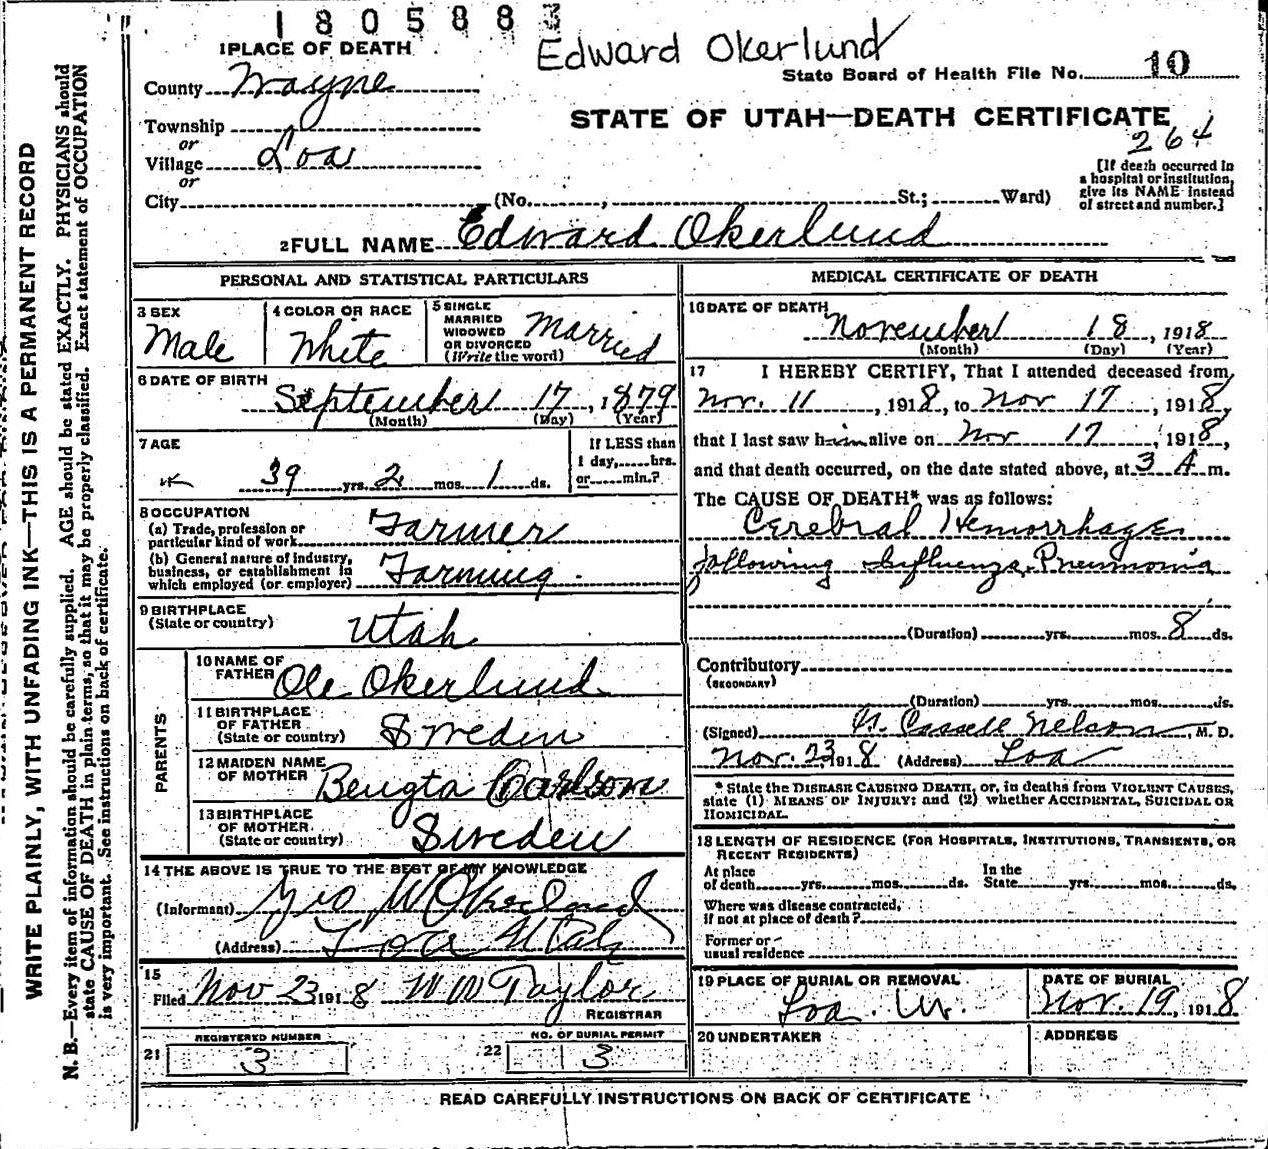 1805883
Edward Okerlund
1 PLACE OF DEATH
State Board of Health File No. 10
County Wayne
STATE OF UTAH—DEATH CERTIFICATE
264
Township
or
Village Loa
or
City (No. , St.; Ward)
[If death occurred in
a hospital or institution,
give its NAME instead
of street and number.]
2 FULL NAME Edward Okerlund
PERSONAL AND STATISTICAL PARTICULARS
3 SEX
Male
4 COLOR OR RACE
White
5 SINGLE
MARRIED
WIDOWED
OR DIVORCED
(Write the word)
Married
6 DATE OF BIRTH
September 17, 1879
(Month) (Day) (Year)
7 AGE
39 yrs. 2 mos. 1 ds.
If LESS than
1 day, hrs.
or min.?
8 OCCUPATION
(a) Trade, profession or
particular kind of work Farmer
(b) General nature of industry,
business, or establishment in
which employed (or employer) Farming
9 BIRTHPLACE
(State or country)
Utah
PARENTS
10 NAME OF
FATHER Ole Okerlund
11 BIRTHPLACE
OF FATHER
(State or country) Sweden
12 MAIDEN NAME
OF MOTHER Bengta Carlson
13 BIRTHPLACE
OF MOTHER
(State or country) Sweden
14 THE ABOVE IS TRUE TO THE BEST OF MY KNOWLEDGE
(Informant) Geo W Okerlund
(Address) Loa Utah
15
Filed Nov 23 1918 W W Taylor
REGISTRAR
REGISTERED NUMBER
21 3
NO. OF BURIAL PERMIT
22 3
MEDICAL CERTIFICATE OF DEATH
16 DATE OF DEATH
November 18, 1918
(Month) (Day) (Year)
17 I HEREBY CERTIFY, That I attended deceased from
Nov. 11, 1918, to Nov 17, 1918,
that I last saw him alive on Nov 17, 1918,
and that death occurred, on the date stated above, at 3 A m.
The CAUSE OF DEATH* was as follows:
Cerebral Hemorrhage
following Influenza Pneumonia
(Duration) yrs. mos. 8 ds.
Contributory
(SECONDARY)
(Duration) yrs. mos. ds.
(Signed) Nelson, M. D.
Nov. 23 1918 (Address) Loa
* State the DISEASE CAUSING DEATH, or, in deaths from VIOLENT CAUSES,
state (1) MEANS OF INJURY; and (2) whether ACCIDENTAL, SUICIDAL OR
HOMICIDAL.
18 LENGTH OF RESIDENCE (FOR HOSPITALS, INSTITUTIONS, TRANSIENTS, OR
RECENT RESIDENTS)
At place
of death yrs. mos. ds.
In the
State yrs. mos. ds.
Where was disease contracted,
if not at place of death?
Former or
usual residence
19 PLACE OF BURIAL OR REMOVAL
Loa. Ut.
DATE OF BURIAL
Nov. 19, 1918
20 UNDERTAKER
ADDRESS
READ CAREFULLY INSTRUCTIONS ON BACK OF CERTIFICATE
WRITE PLAINLY, WITH UNFADING INK—THIS IS A PERMANENT RECORD
N. B.—Every item of information should be carefully supplied. AGE should be stated EXACTLY. PHYSICIANS should
state CAUSE OF DEATH in plain terms, so that it may be properly classified. Exact statement of OCCUPATION
is very important. See instructions on back of certificate.